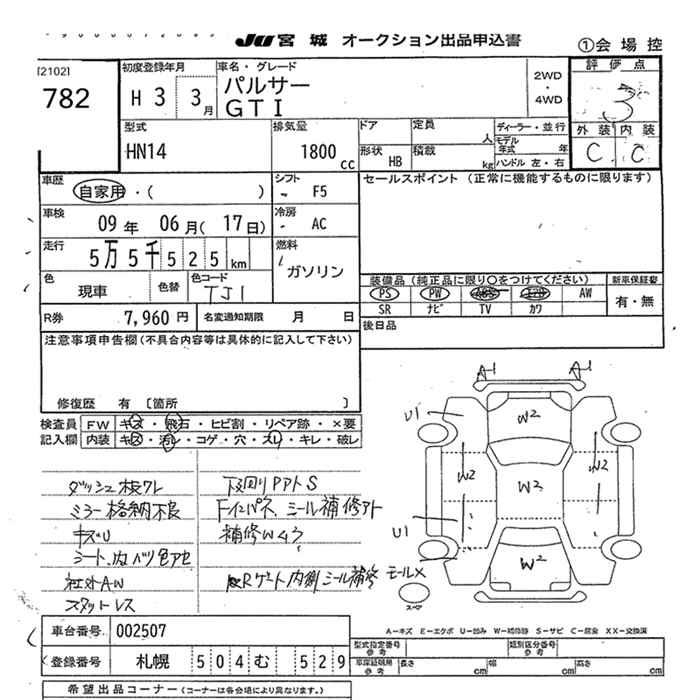 JU 宮城 オークション出品申込書 ①会場控
[2102]
782
初度登録年月 H 3 3月
車名・グレード
パルサー
GTI
2WD
・
4WD
評価点
3
外装 内装
C C
型式
HN14
排気量
1800 cc
ドア
定員 人
形状 HB
積載 kg
ディーラー・並行
モデル年式 年
ハンドル 左・右
車歴 自家用・( )
シフト - F5
セールスポイント (正常に機能するものに限ります)
車検 09年 06月(17日)
冷房 - AC
走行 5万5千525km
燃料
ガソリン
色 現車
色替
色コード TJ1
装備品(純正品に限り○をつけてください)
新車保証書
PS PW AW
SR ナビ TV カワ
有・無
R券 7,960円
名変通知期限 月 日
後日品
注意事項申告欄(不具合内容等は具体的に記入して下さい)
修復歴 有 〔箇所 〕
検査員 FW キズ・飛石・ヒビ割・リペア跡・×要
記入欄 内装 キズ・汚れ・コゲ・穴・スレ・キレ・破レ
ダッシュ板ワレ
ミラー格納不良
キズU
シート、内バリ色アセ
社外AW
スタットレス
下回りPアトS
Fインパネ、シール補修アト
補修W4ヶ
Rゲート内側シール補修
モールX
A-1 A-1
U1
W2
W2 W2
W3
U1
W2
スペア
A-キズ E-エクボ U-凹み W-補修跡 S-サビ C-腐食 XX-交換済
車台番号 002507
登録番号 札幌 504む 529
型式指定番号 参考
類別区分番号 参考
車庫証明用 参考 長さ cm 幅 cm 高さ cm
希望出品コーナー(コーナーは各会場により異なります。)